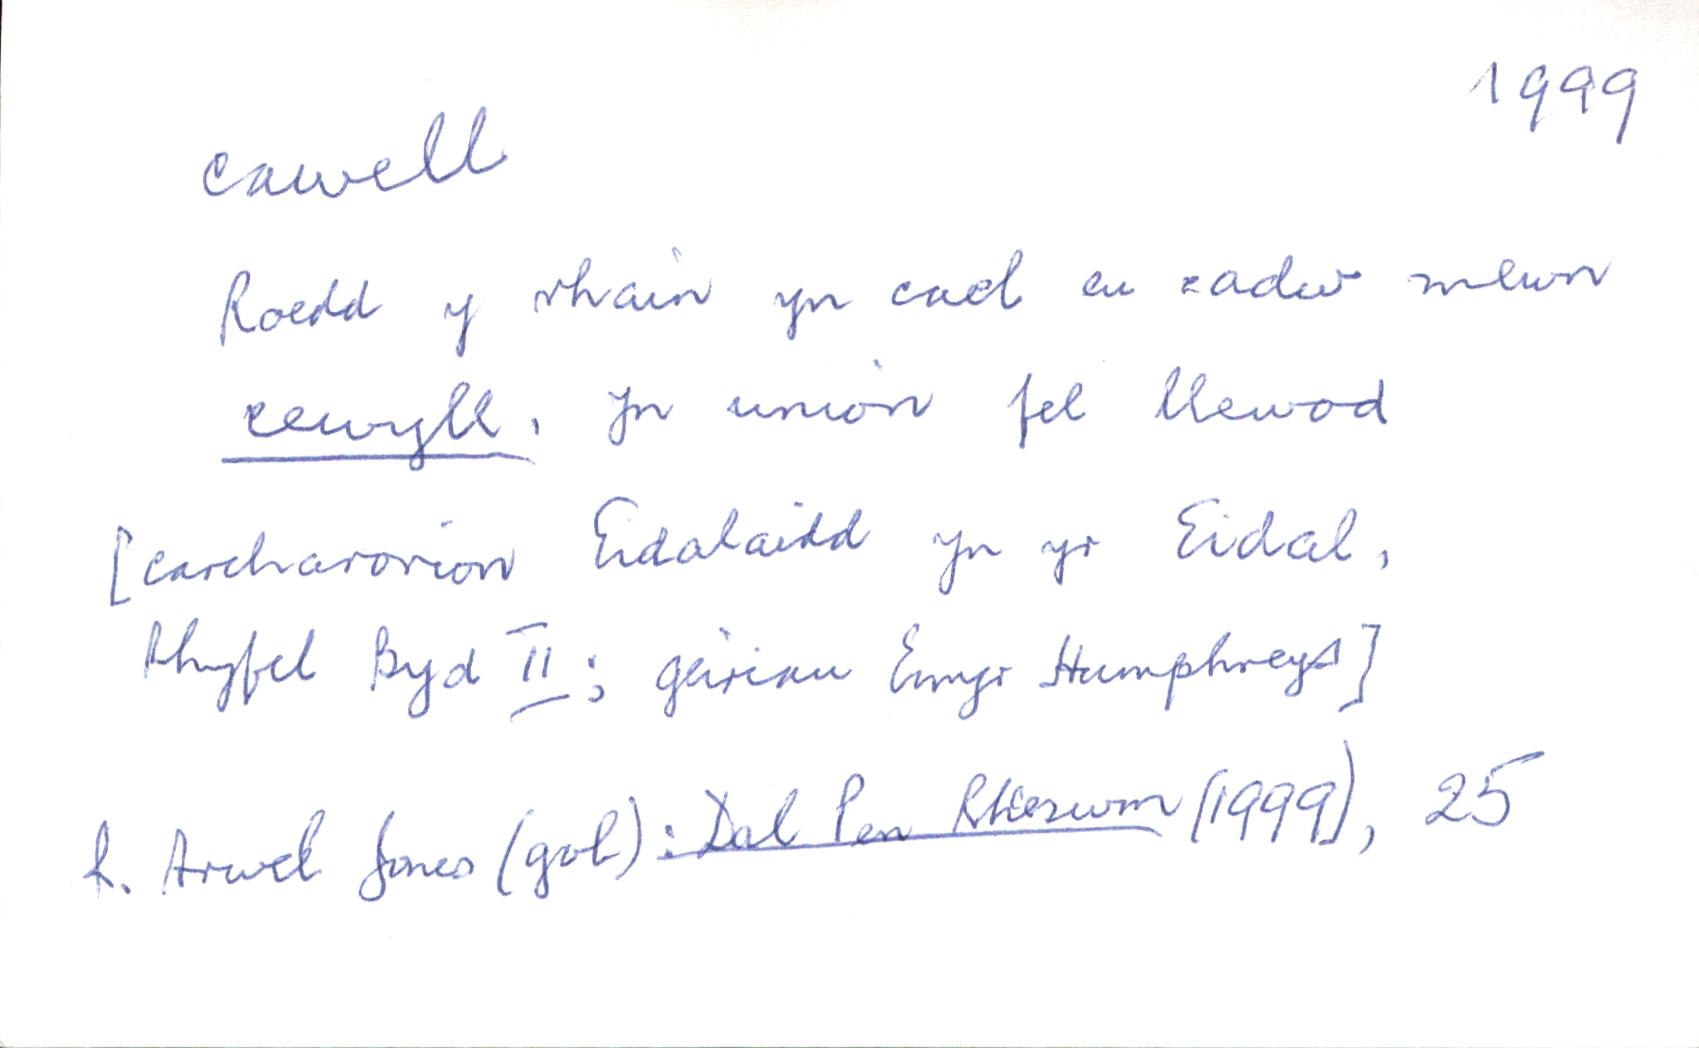 1999
cawell
Roedd y rhain yn cael eu cadw mewn
cewyll. Yn union fel llewod
[carcharorion Eidalaidd yn yr Eidal,
Rhyfel Byd II; geiriau Emyr Humphreys]
R. Arwel Jones (gol): Dal Pen Rheswm (1999), 25